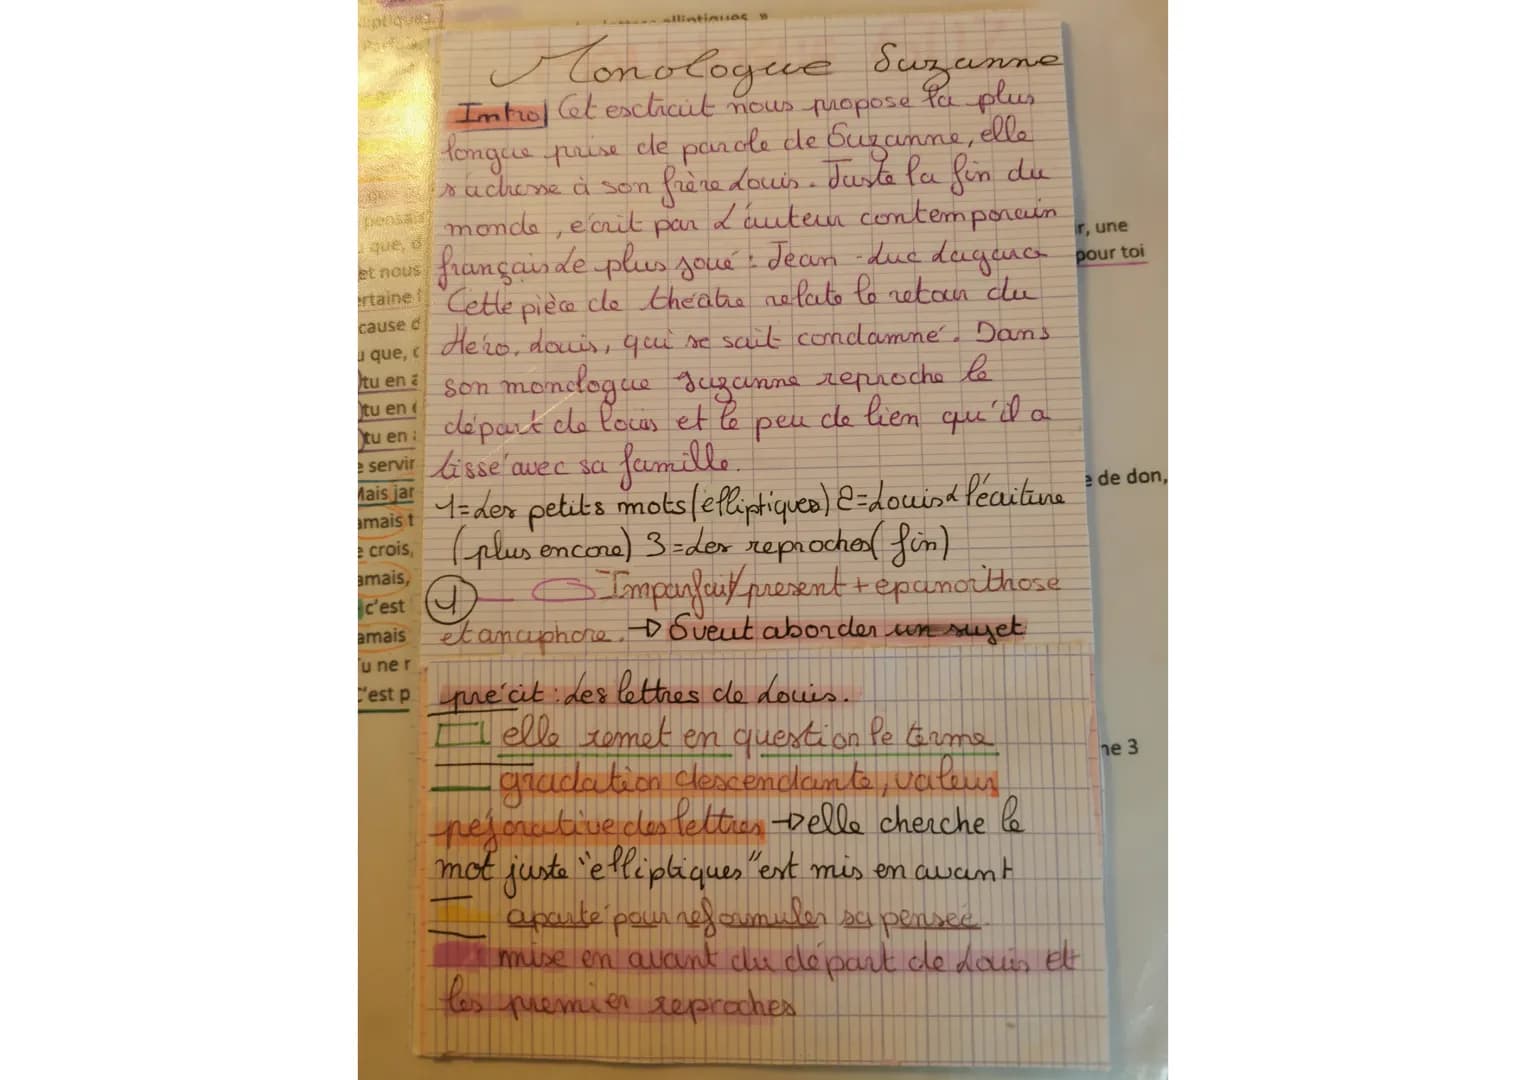 lettres elliptiques »
Monologue Suzanne
Intro| Cet esctrait nous propose la plus
longue prise de parole de Suzanne, elle
s'adresse à son frère Louis. Juste la fin du
monde, écrit par l'auteur contemporain
français de plus joué : Jean-Luc Lagarce
Cette pièce de théatre relate le retour du
Héro, Louis, qui se sait condamné. Dans
son monologue Suzanne reproche le
départ de Louis et le peu de lien qu'il a
tissé avec sa famille.
1=Les petits mots (elliptiques) 2=Louis & l'écriture
(plus encore) 3=Les reproches (fin)
1 Imparfait/present + épanorthose
et anaphore. → S veut aborder un sujet
précit : les lettres de Louis.
elle remet en question le terme
gradation descendante, valeur
péjorative des lettres → elle cherche le
mot juste "elliptiques" est mis en avant
aparté pour reformuler sa pensée.
mise en avant du départ de Louis et
les premier reproches
pensais
que, d
et nous
ertaine
cause d
u que, c
tu en a
tu en
tu en
e servir
Mais jar
amais t
e crois,
amais,
c'est
amais
Tu ne r
C'est p
r, une
pour toi
e de don,
ne 3